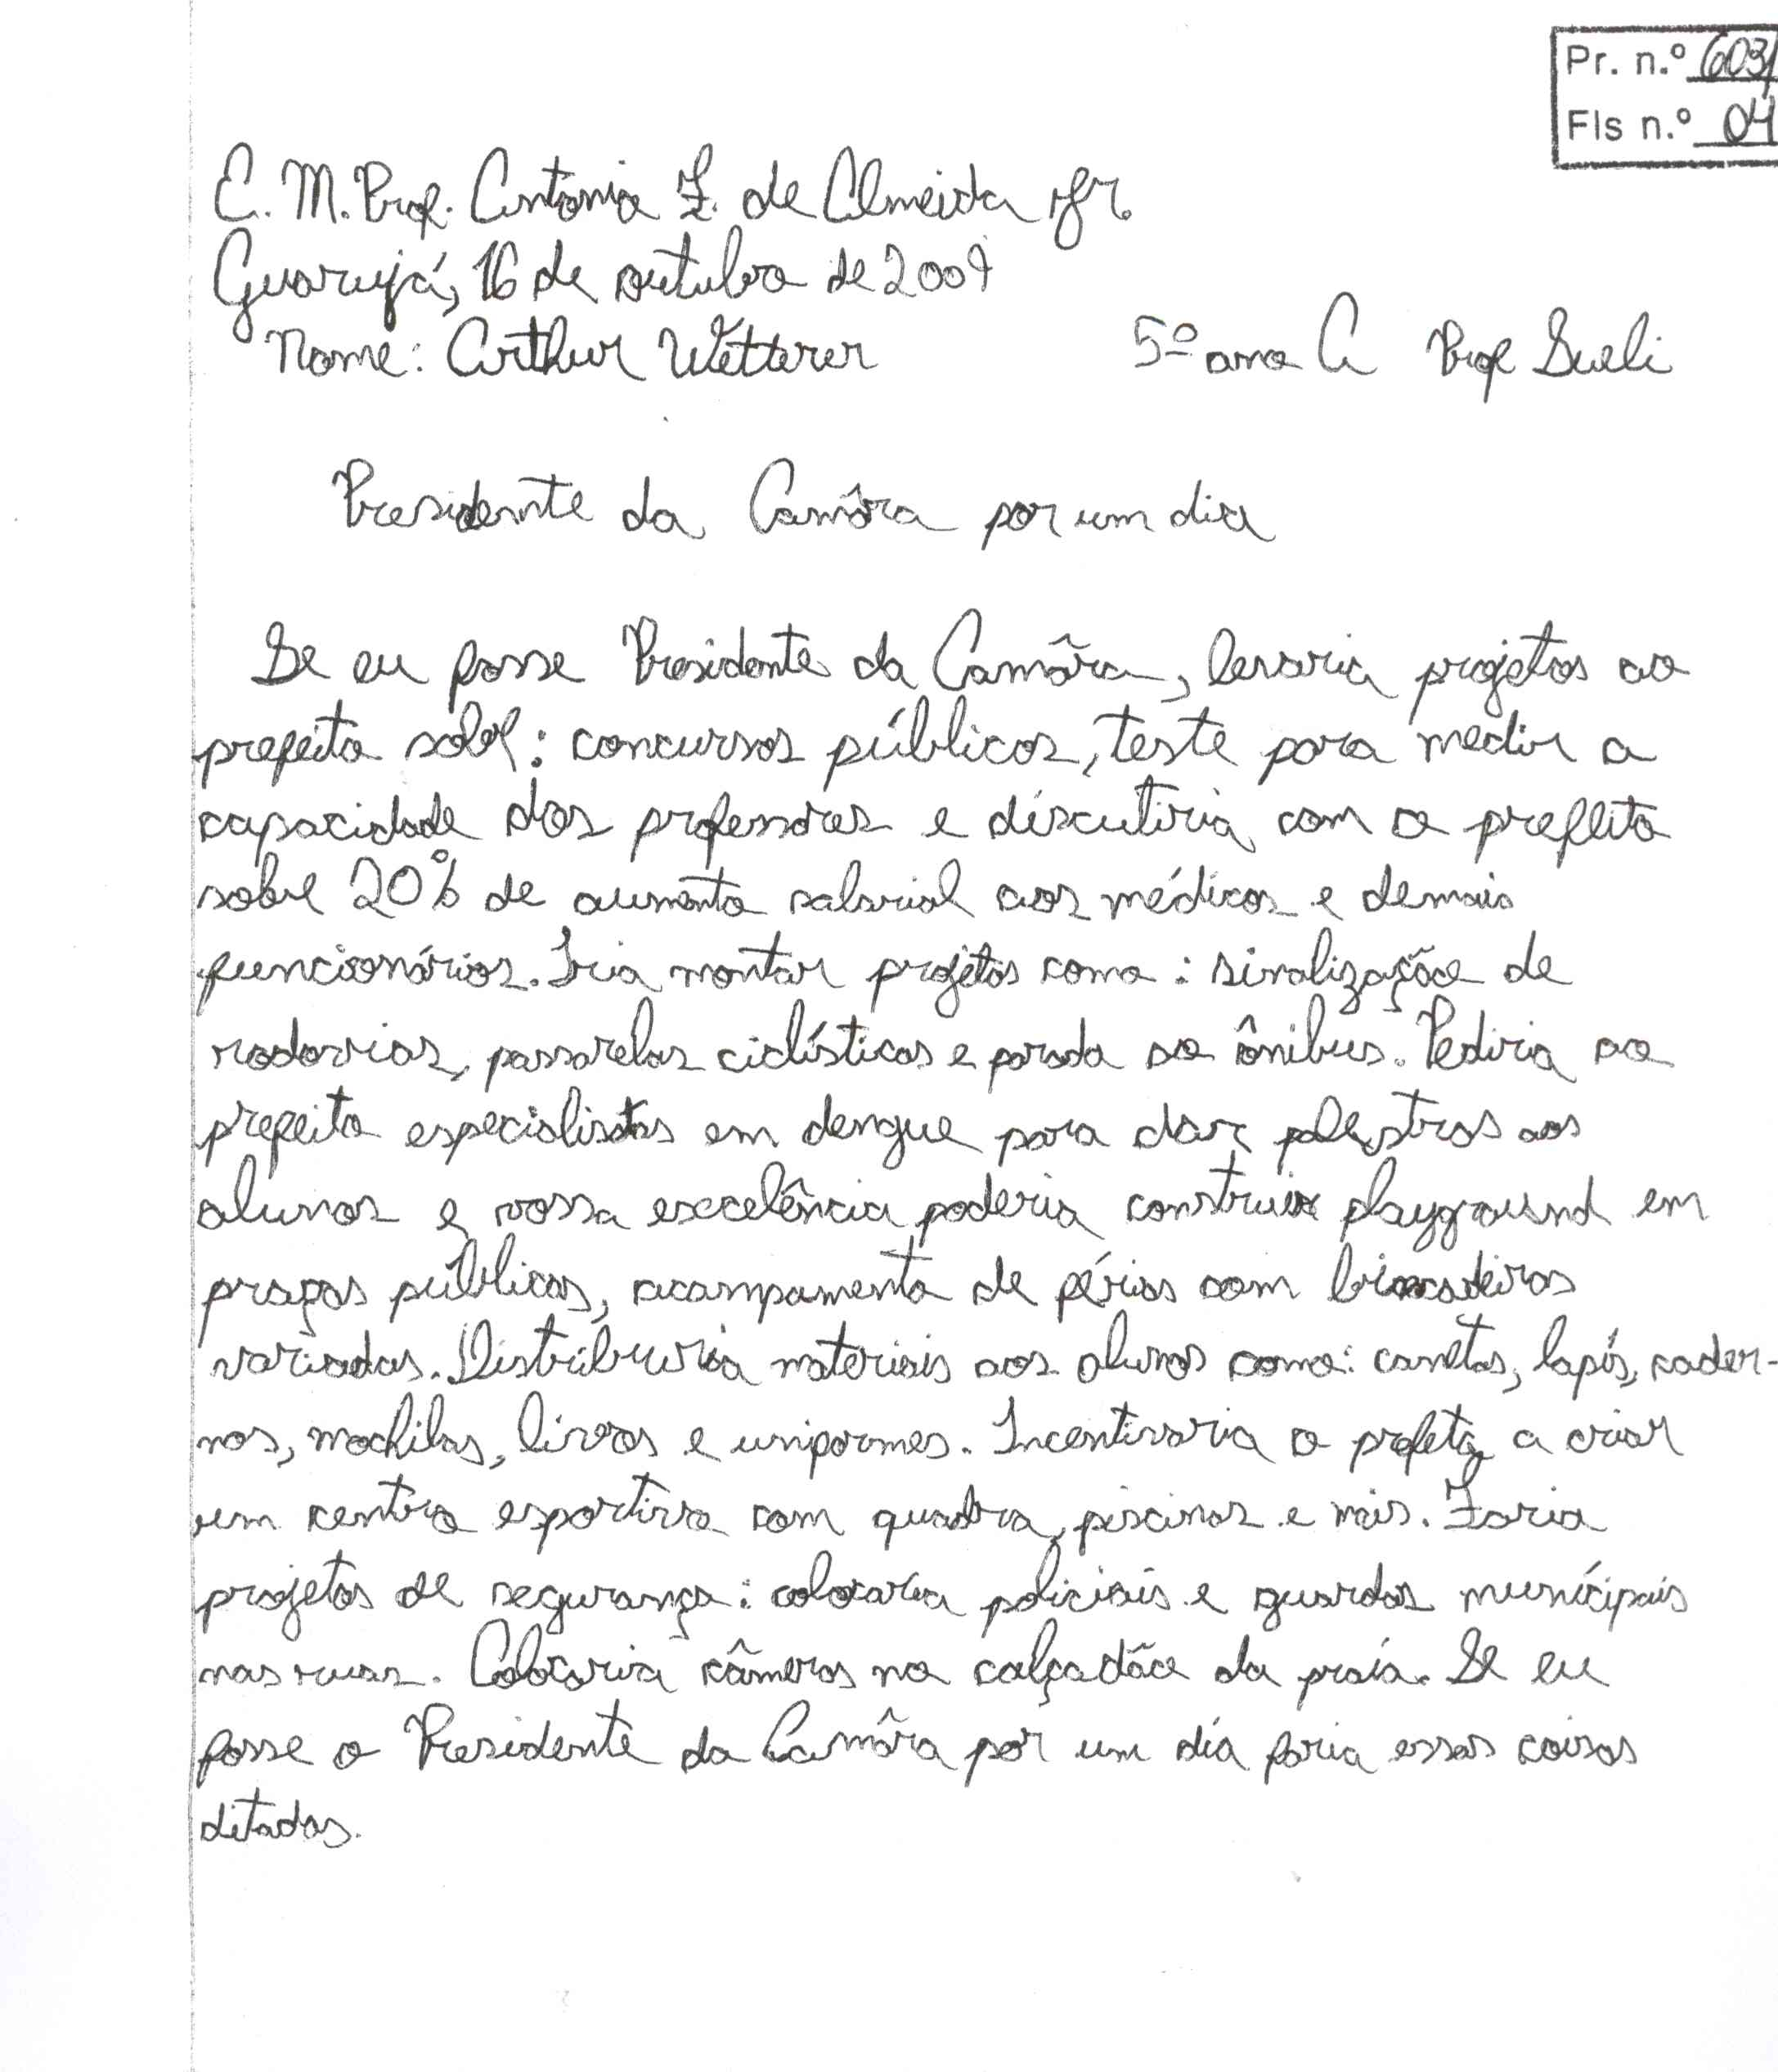 Pr. n.º 603/
Fls n.º 04
E. M. Prof. Antonio F. de Almeida Jr.
Guarujá, 16 de outubro de 2009
Nome: Arthur Wetterer 5º ano A Prof Sueli
Presidente da Camôra por um dia
Se eu fosse Presidente da Camôra, levaria projetos ao
prefeito sobre: concursos públicos, teste para medir a
capacidade dos professores e discutiria com o prefeito
sobre 20% de aumento salarial aos médicos e demais
funcionários. Iria montar projetos como: sinalização de
rodovias, passarelas ciclísticas e parada ao ônibus. Pediria ao
prefeito especialistas em dengue para dar palestras aos
alunos e vossa excelência poderia construir playground em
praças públicas, acampamento de férias com brincadeiras
variadas. Distribuiria materiais aos alunos como: canetas, lapís, cader-
nos, mochilas, livros e uniformes. Incentivaria o prefeito a criar
um centro esportivo com quadra, piscinas e mais. Faria
projetos de segurança: colocaria policiais e guardas munícipais
nas ruas. Colocaria câmeras no calçadão da praia. Se eu
fosse o Presidente da Camôra por um dia faria essas coisas
ditadas.